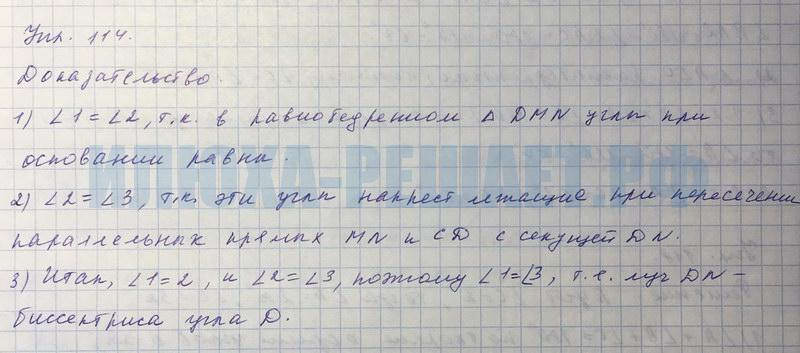 Упр. 114.
Доказательство.
1) ∠1=∠2, т.к. в равнобедренном Δ DMN углы при
основании равны.
ИЛЮХА-РЕШАЕТ.РФ
2) ∠2=∠3, т.к. эти углы накрест лежащие при пересечении
параллельных прямых MN и CD с секущей DN.
3) Итак, ∠1=2, и ∠2=∠3, поэтому ∠1=∠3, т.е. луч DN –
биссектриса угла D.